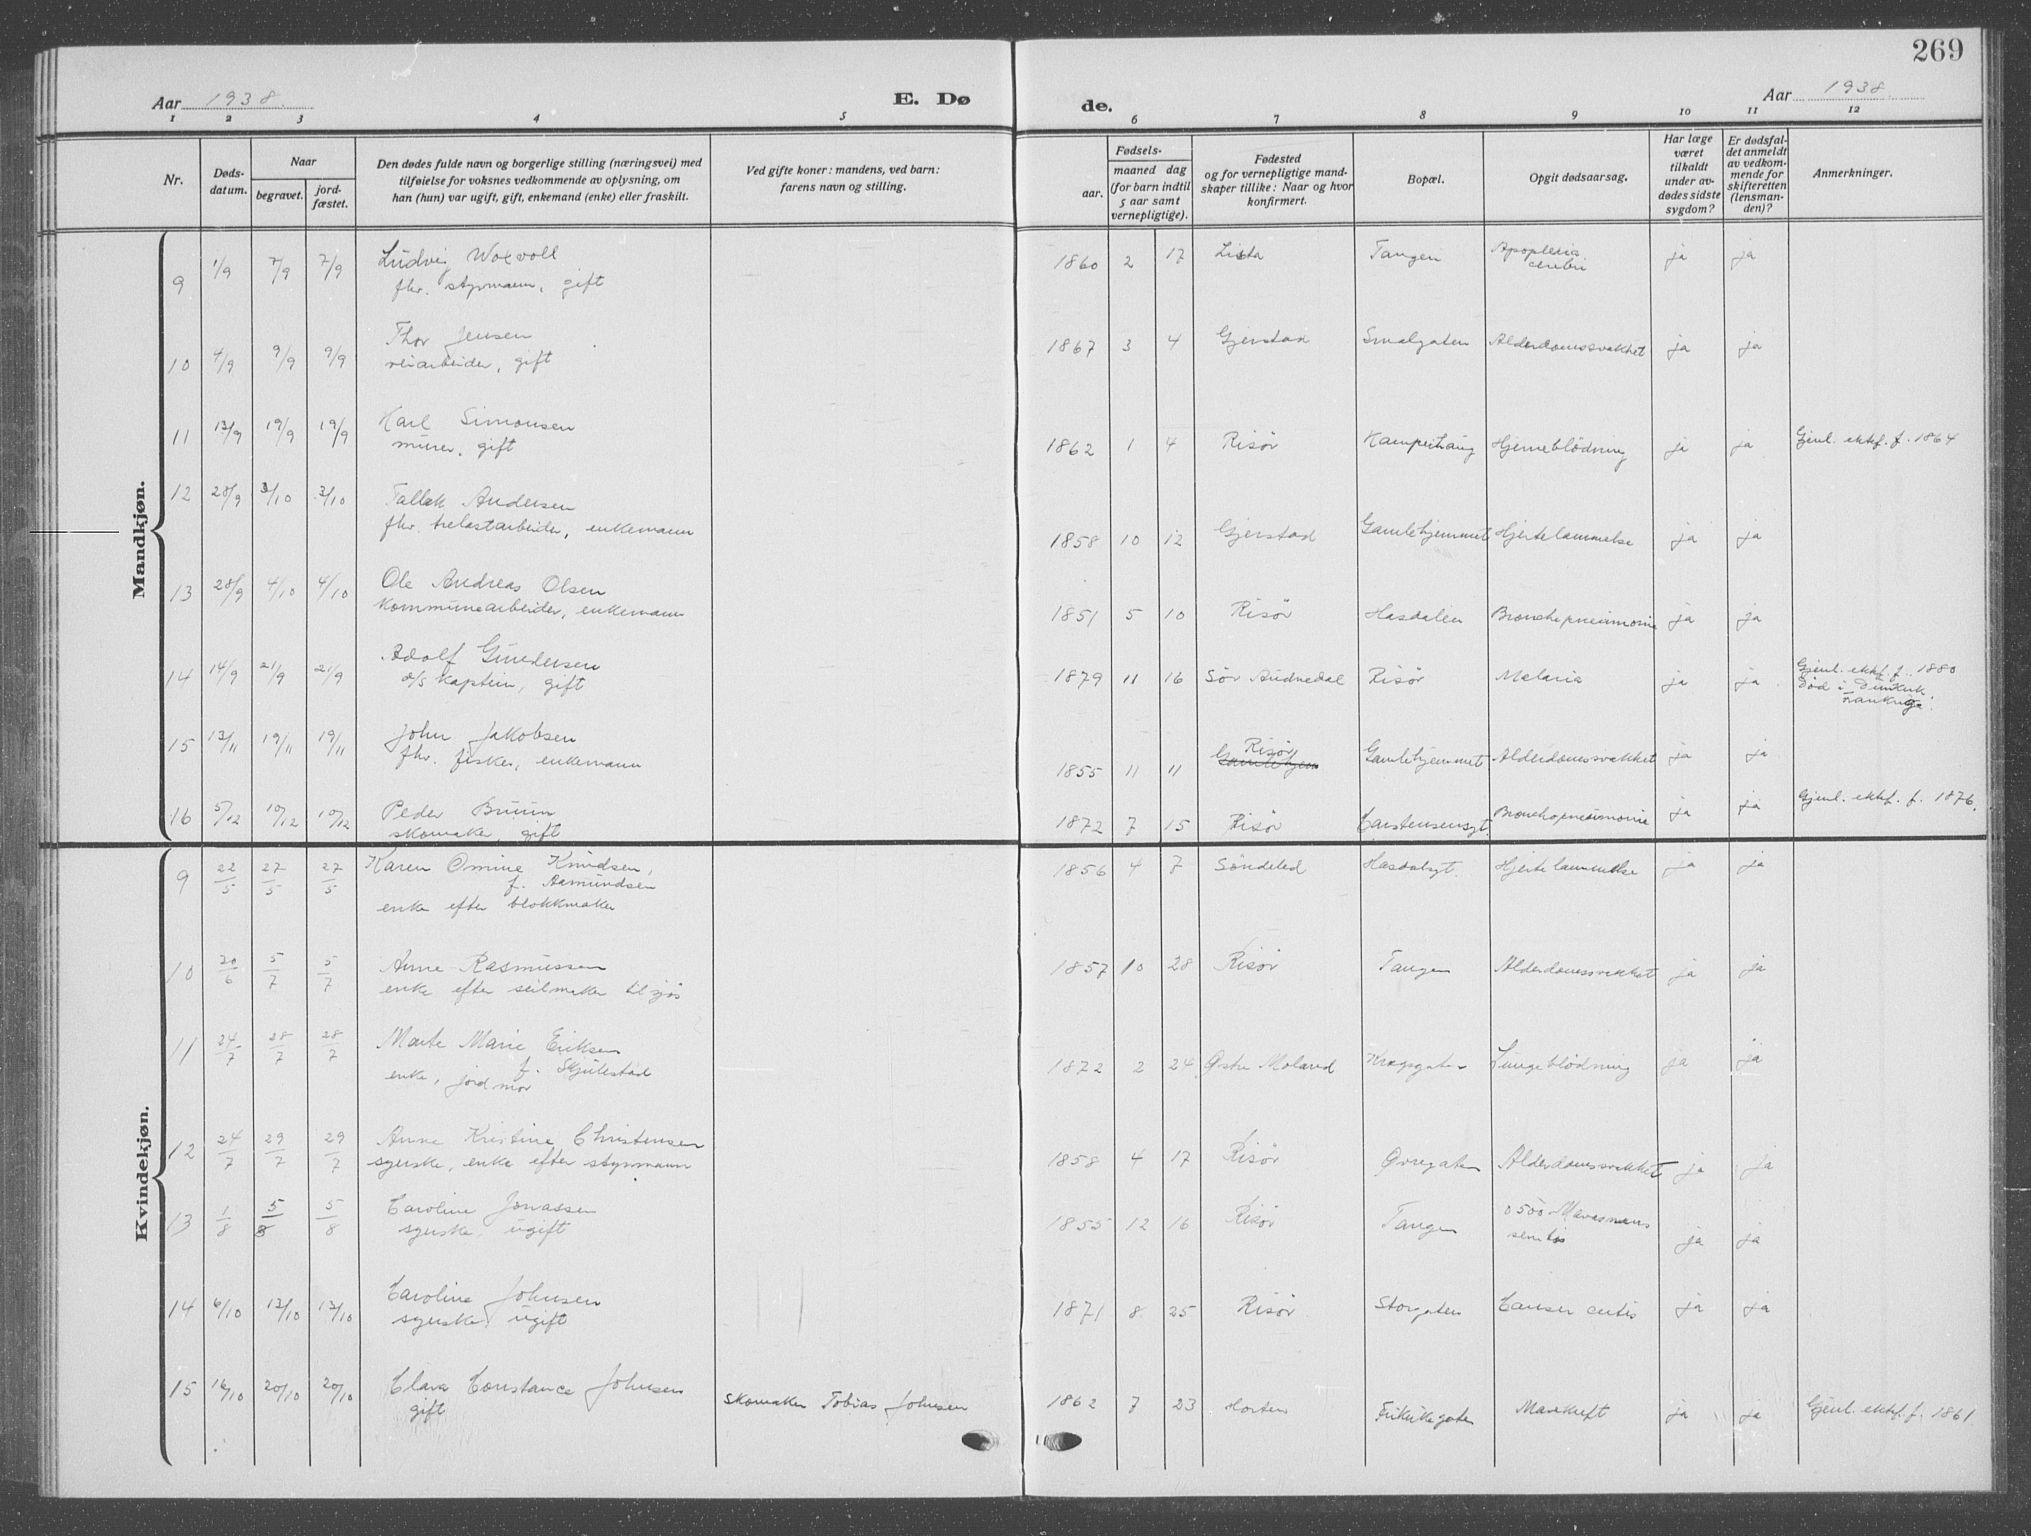 269
Aar 1938. E. Dø de. Aar 1938.
1 2 3 4 5 6 7 8 9 10 11 12
Nr.
Døds-
datum.
Naar
begravet.
jord-
fæstet.
Den dødes fulde navn og borgerlige stilling (næringsvei) med
tilføielse for voksnes vedkommende av oplysning, om
han (hun) var ugift, gift, enkemand (enke) eller fraskilt.
Ved gifte koner: mandens, ved barn:
farens navn og stilling.
Fødsels-
aar.
maaned dag
(for barn indtil
5 aar samt
vernepligtige).
Fødested
og for vernepligtige mand-
skaper tillike: Naar og hvor
konfirmert.
Bopæl.
Opgit dødsaarsag.
Har læge
været
tilkaldt
under av-
dødes sidste
sygdom?
Er dødsfal-
det anmeldt
av vedkom-
mende for
skifteretten
(lensman-
den)?
Anmerkninger.
Mandkjøn.
9 1/9 7/9 7/9 Ludvig Woxvoll 1860 2 17 Lista Tangen Apoplexia ja ja
cerebri
fhv. styrmann, gift
10 4/9 9/9 9/9 Thor Jensen 1867 3 4 Gjerstad Smalgaten Alderdomssvakhet ja ja
veiarbeider, gift
11 13/9 19/9 19/9 Karl Simonsen 1862 1 4 Risør Kamperhaug Hjerneblödning ja ja Gjenl. ektef. f. 1864
murer, gift
12 28/9 3/10 3/10 Tallak Andersen
fhv. trelastarbeider, enkemann 1858 10 12 Gjerstad Gamlehjemmet Hjertelammelse ja ja
13 28/9 4/10 4/10 Ole Andreas Olsen
kommunearbeider, enkemann 1851 5 10 Risør Hasdalen Bronchopneumonie ja ja
14 14/9 21/9 21/9 Adolf Gundersen 1879 11 16 Sör Audnedal Risör Malaria ja ja Gjenl. ektef. f. 1880
d/s kaptein, gift Död i Dunkirk
Frankrige.
15 13/11 19/11 19/11 John Jakobsen Risör
fhv. fisker, enkemann 1855 11 11 Gamlehjem Gamlehjemmet Alderdomssvakhet ja ja
16 5/12 10/12 10/12 Peder Bruun 1872 7 15 Risör Carstensensgt. Bronchopneumonie ja ja Gjenl. ektef. f. 1876.
skomaker, gift
Kvindekjøn.
9 22/5 27/5 27/5 Karen Omine Knudsen, 1856 4 7 Söndeled Hasdalsgt. Hjertelammelse ja ja
f. Aamundsen
enke efter blokkmaker
10 20/6 5/7 5/7 Anne Rasmussen 1857 10 28 Risör Tangen Alderdomssvakhet ja ja
enke efter seilmaker til sjös
11 24/7 28/7 28/7 Marte Marie Eriksen
f. Skjulestad
enke, jordmor 1872 2 24 Østre Moland Kragsgaten Lungeblödning ja ja
12 24/7 29/7 29/7 Anne Kristine Christensen
syerske, enke efter styrmann 1858 4 17 Risör Øvregaten Alderdomssvakhet ja ja
13 1/8 5/8 5/8 Caroline Jonassen 1855 12 16 Risör Tangen ja ja
syerske, ugift
14 6/10 12/10 12/10 Caroline Johnsen 1871 8 25 Risör Storgaten Cancer cutis ja ja
syerske, ugift
15 16/10 20/10 20/10 Clara Constance Johnsen
gift Skomaker Tobias Johnsen 1862 7 23 Horten ja ja Gjenl. ektef. f. 1861.